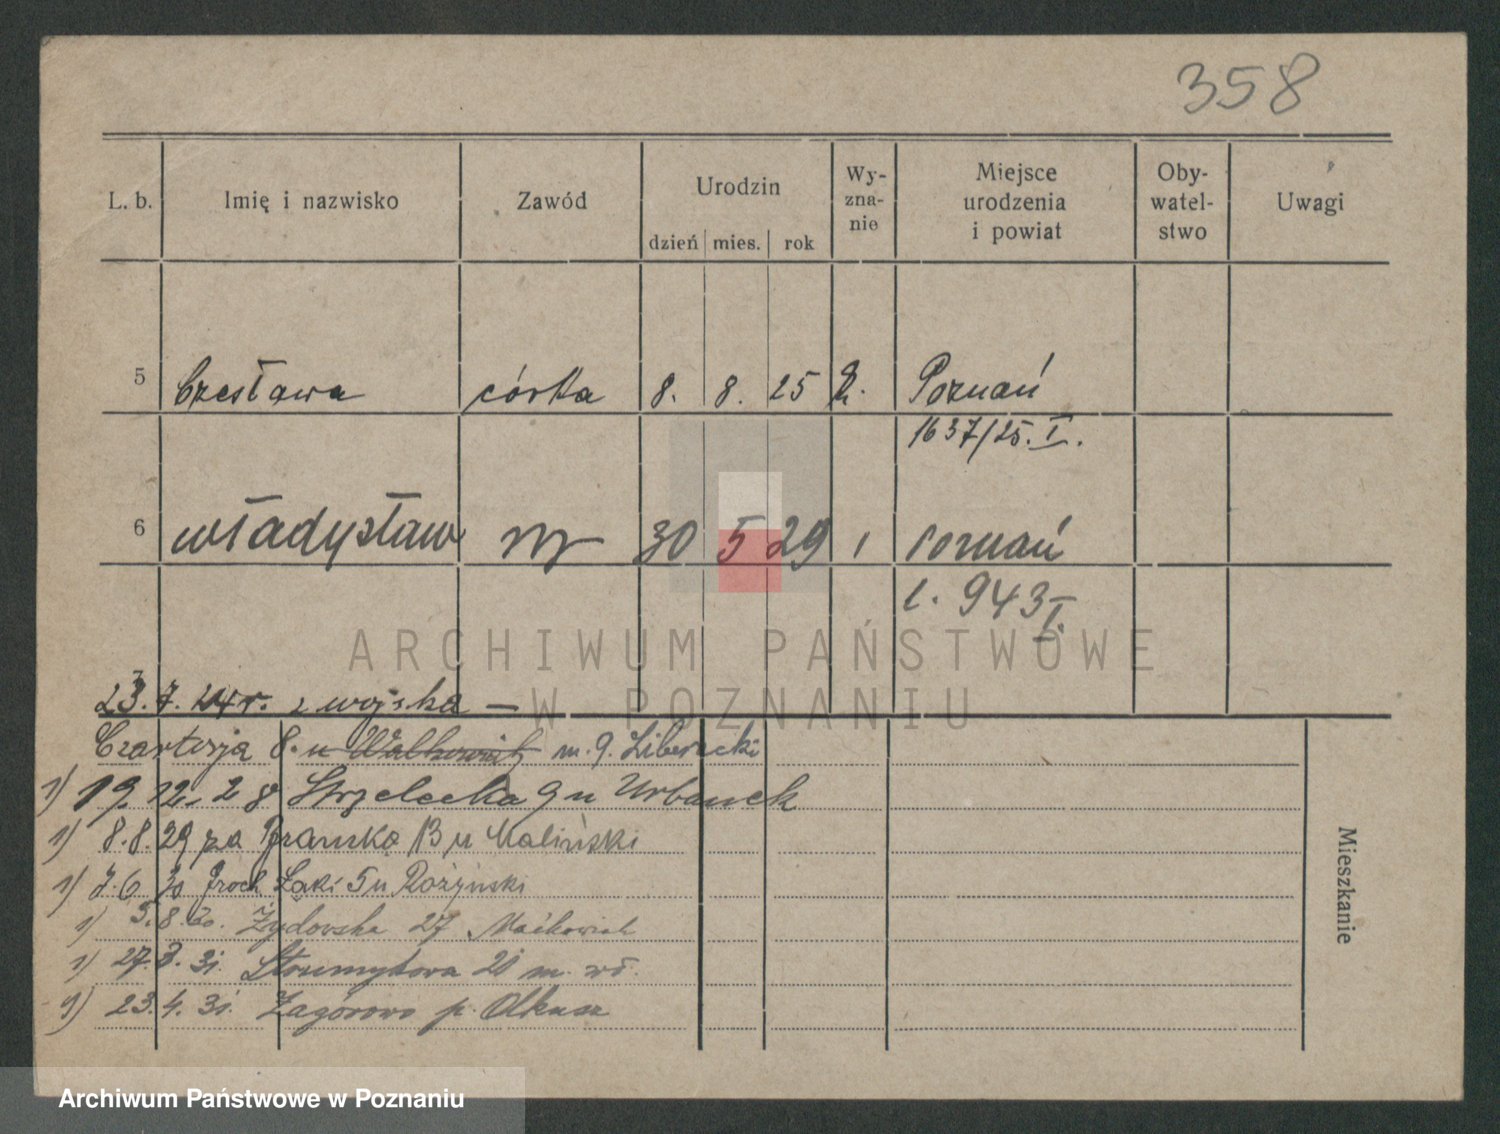 358
L. b. Imię i nazwisko Zawód Urodzin dzień mies. rok Wy-zna-nie Miejsce urodzenia i powiat Oby-watel-stwo Uwagi
5 Czesława córka 8. 8. 25 Poznań
1637/25. I.
6 Władysław 30 5 29 Poznań
l. 943 I.
23. 7. 24 r. z wojska —
8. m. 9. Liberacki
1) 19. 12. 28 Strzelecka 9 u Urbanek
1) 8. 8. 29 za Bramką 13 u Kaliński
1) 7. 6 30 Groch. Łąki 5 u Rożyński
1) 5. 8. 30. Żydowska 27 Maćkowiak
1) 27. 3. 31. Strumykowa 20 m. wł.
9) 23. 4. 31. Zagórowo p. Olkusz
Mieszkanie
ARCHIWUM PAŃSTWOWE
W POZNANIU
Archiwum Państwowe w Poznaniu